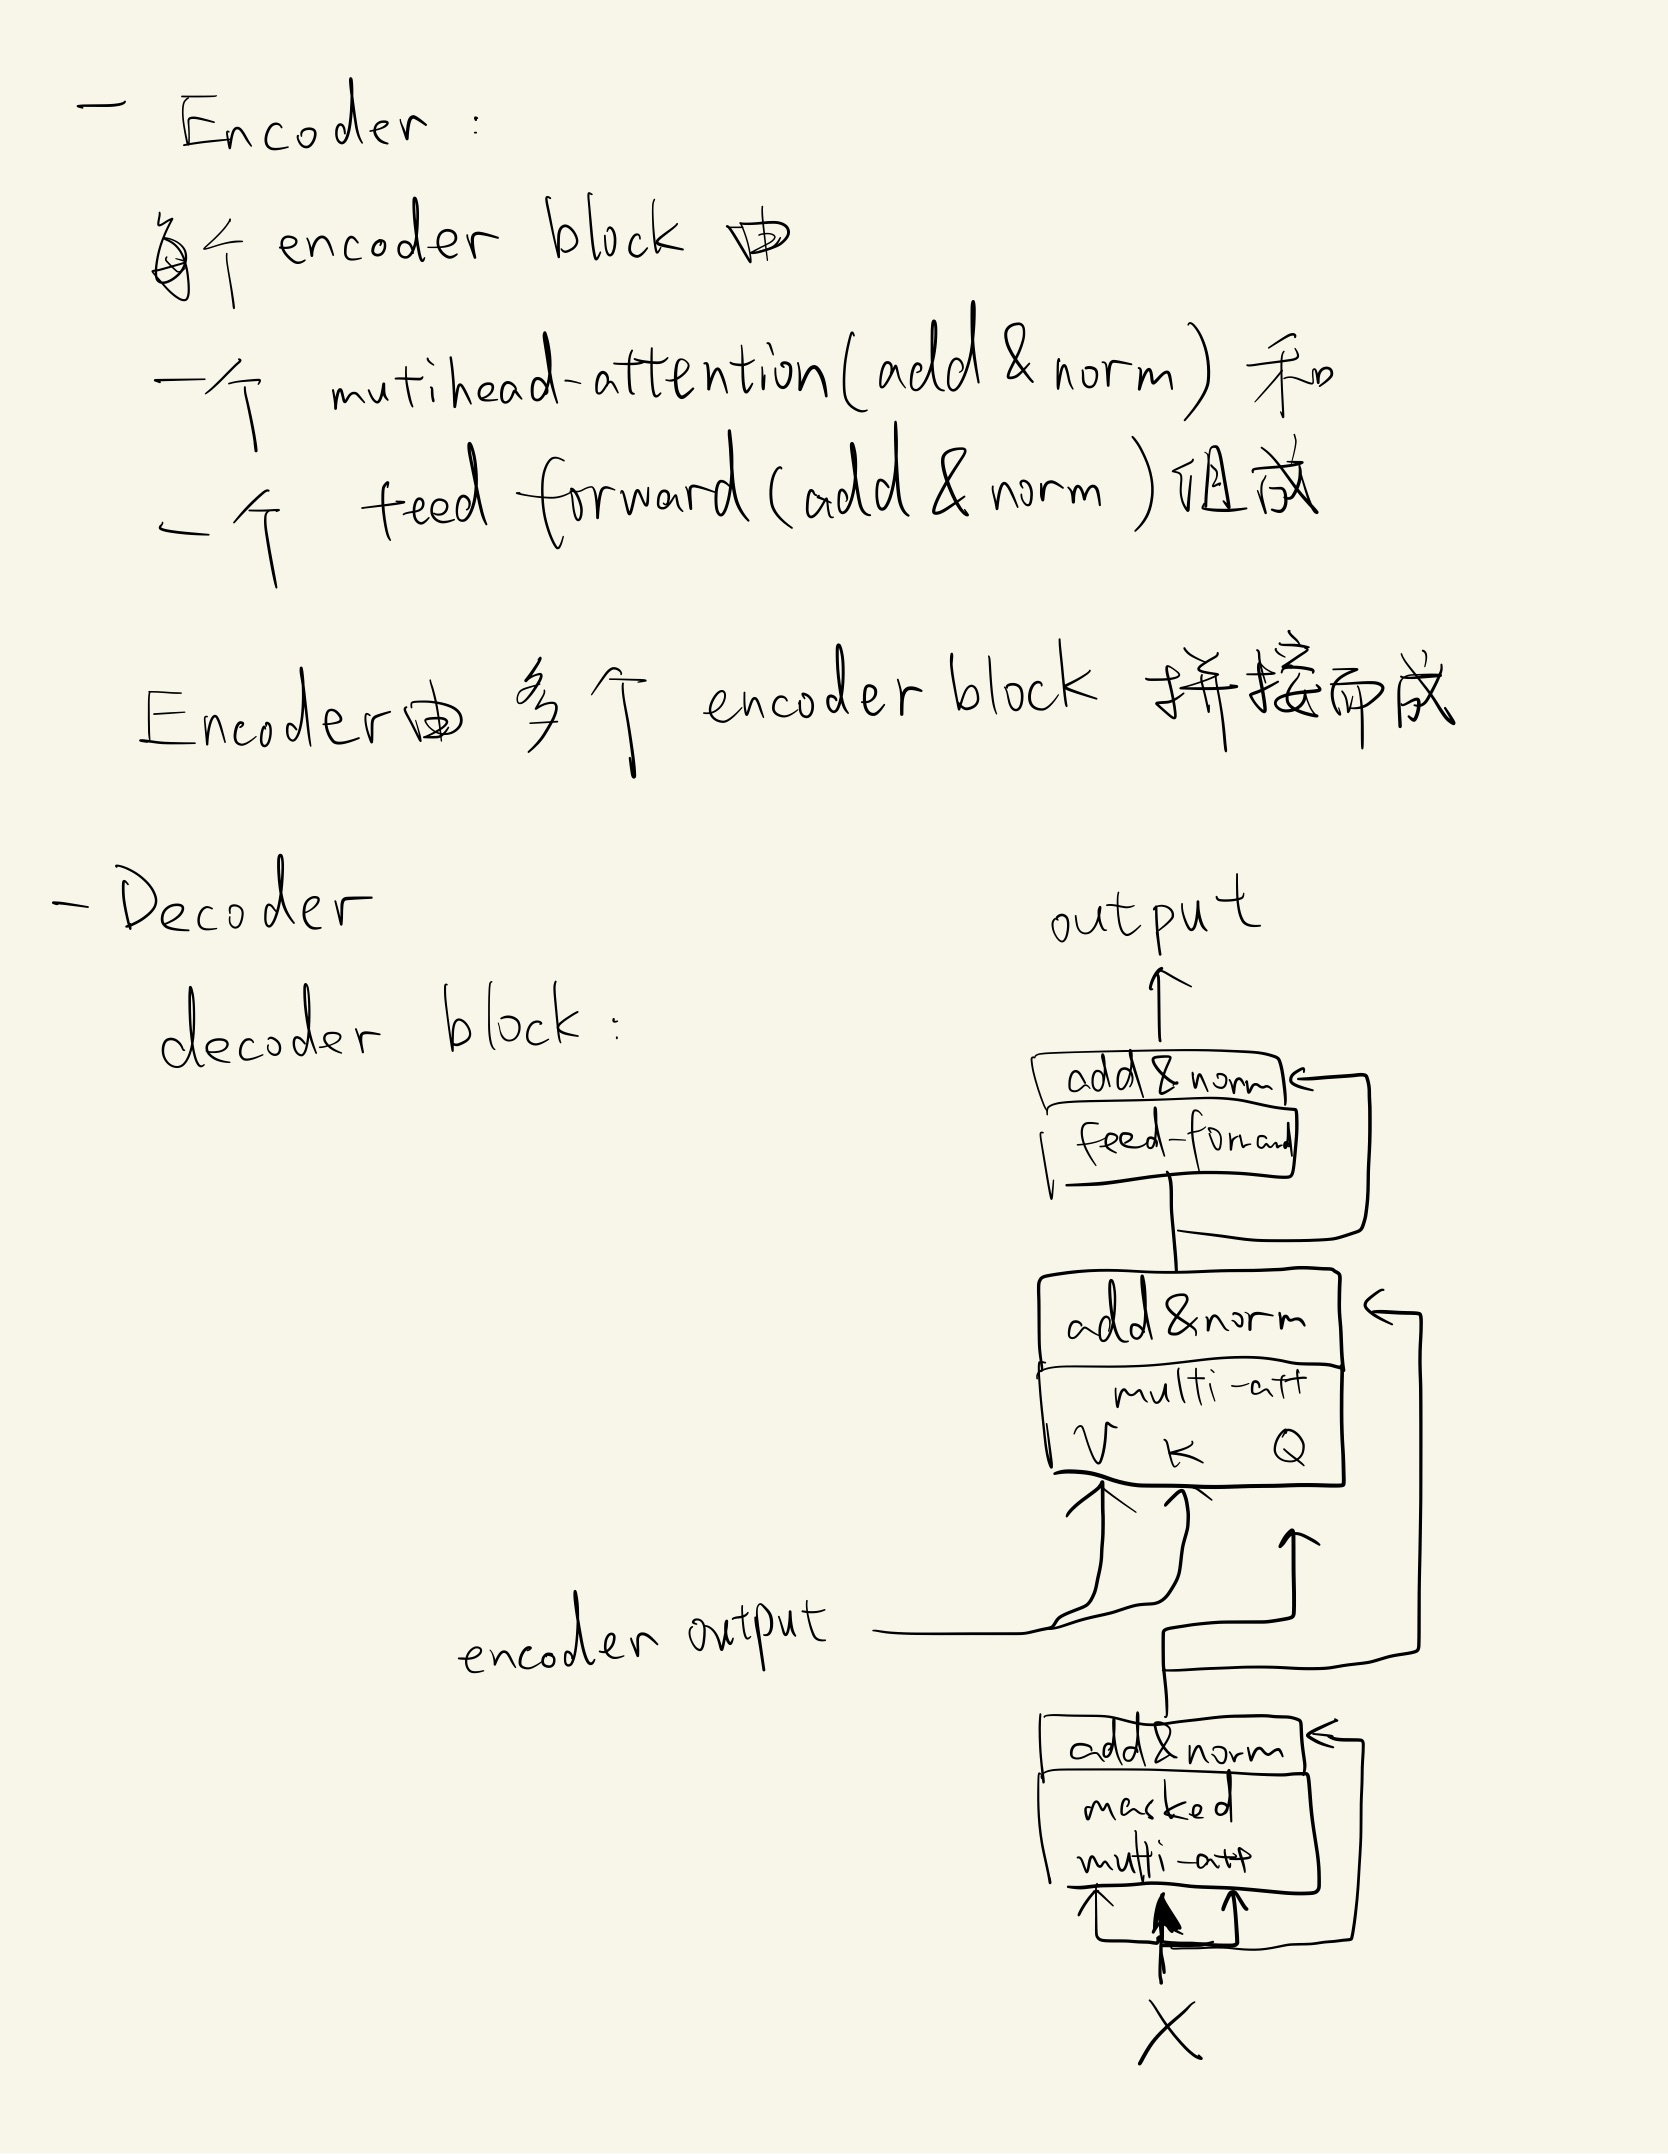 - Encoder :
每个 encoder block 由
一个 mutihead-attention(add & norm) 和
一个 feed forward(add & norm)组成
Encoder由 多个 encoder block 拼接而成
- Decoder
decoder block :
output
add & norm
feed-forward
add & norm
multi-att
V K Q
encoder output
add & norm
masked
multi-att
X